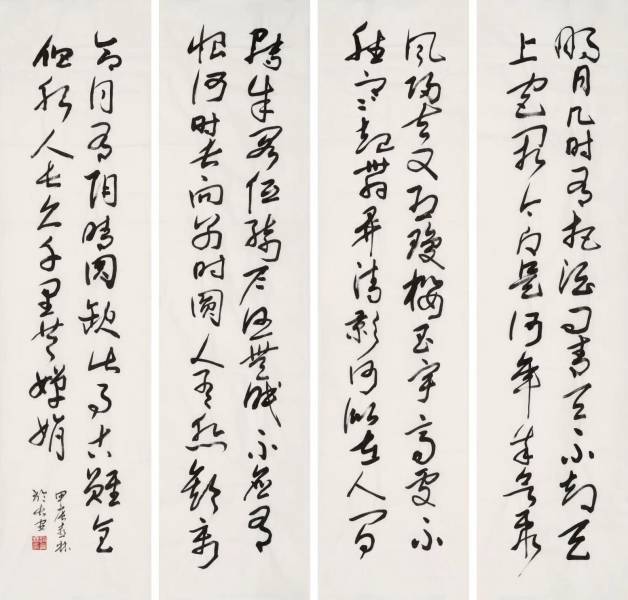 明月几时有把酒问青天不知天
上宫阙今夕是何年我欲乘
风归去又恐瓊楼玉宇高处不
胜寒起舞弄清影何似在人间
轉朱阁低绮户照無眠不应有
恨何时长向别时圆人有悲歡离
合月有阴晴圆缺此事古難全
但愿人长久千里共嬋娟
甲辰
於长安